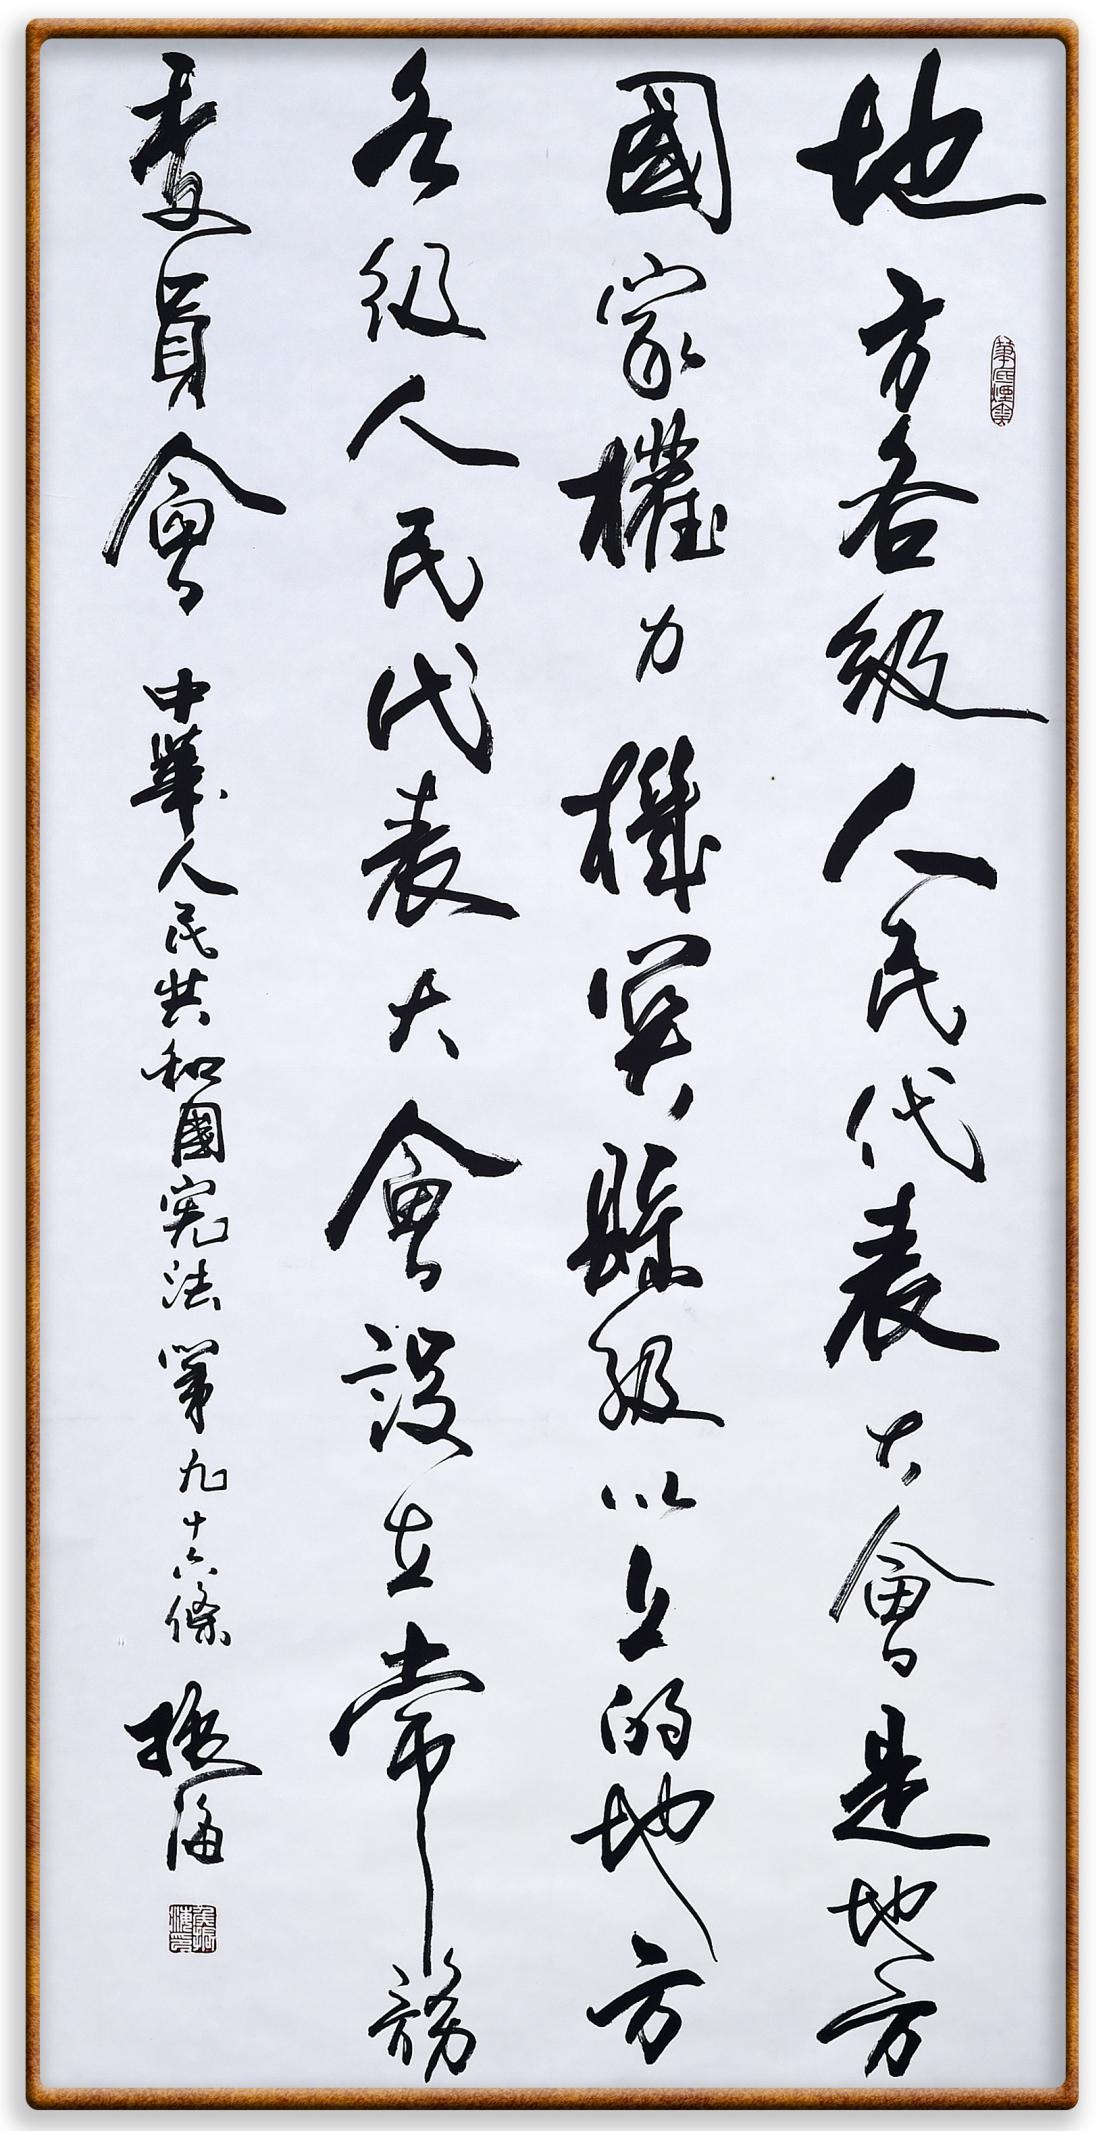 地方各級人民代表大會是地方
筆底煙雲
國家權力機關縣級以上的地方
各級人民代表大會設立常務
委員會 中華人民共和國宪法第九十六條 振海